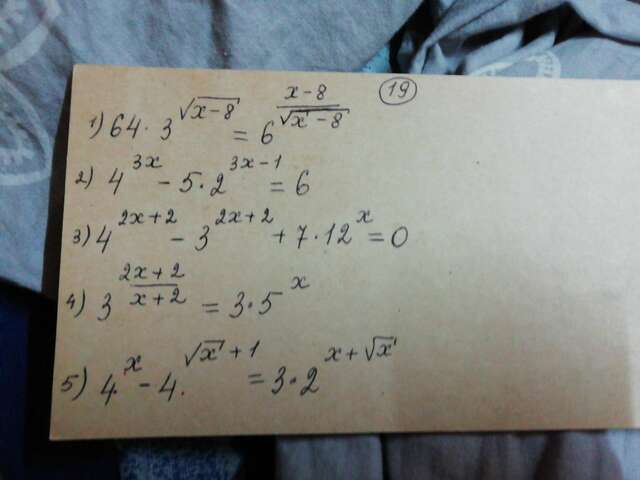 (19)
1) 64·3^(√(x-8)) = 6^((x-8)/(√x-8))
2) 4^(3x) - 5·2^(3x-1) = 6
3) 4^(2x+2) - 3^(2x+2) + 7·12^x = 0
4) 3^((2x+2)/(x+2)) = 3·5^x
5) 4^x - 4·^(√x+1) = 3·2^(x+√x)